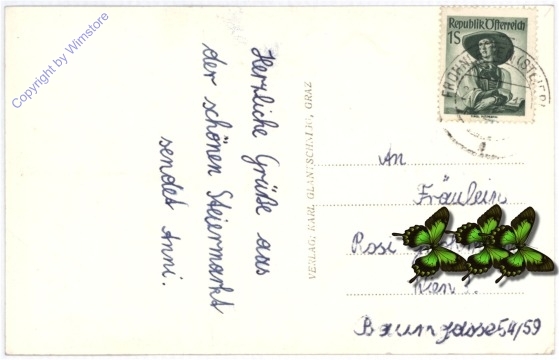 Copyright by Wimstore
Herzliche Grüße aus
der schönen Steiermarkt
sendet Anni.
VERLAG: KARL GLANTSCHNIGG, GRAZ
Republik Österreich
1S
An
Fräulein
Rosi
Wien
Baumgasse 54/59